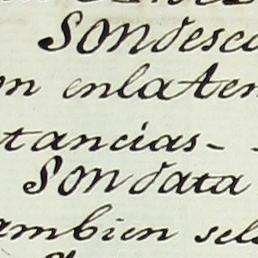 SON desca
on en la Aten
tancias -
SON data
ambien sel